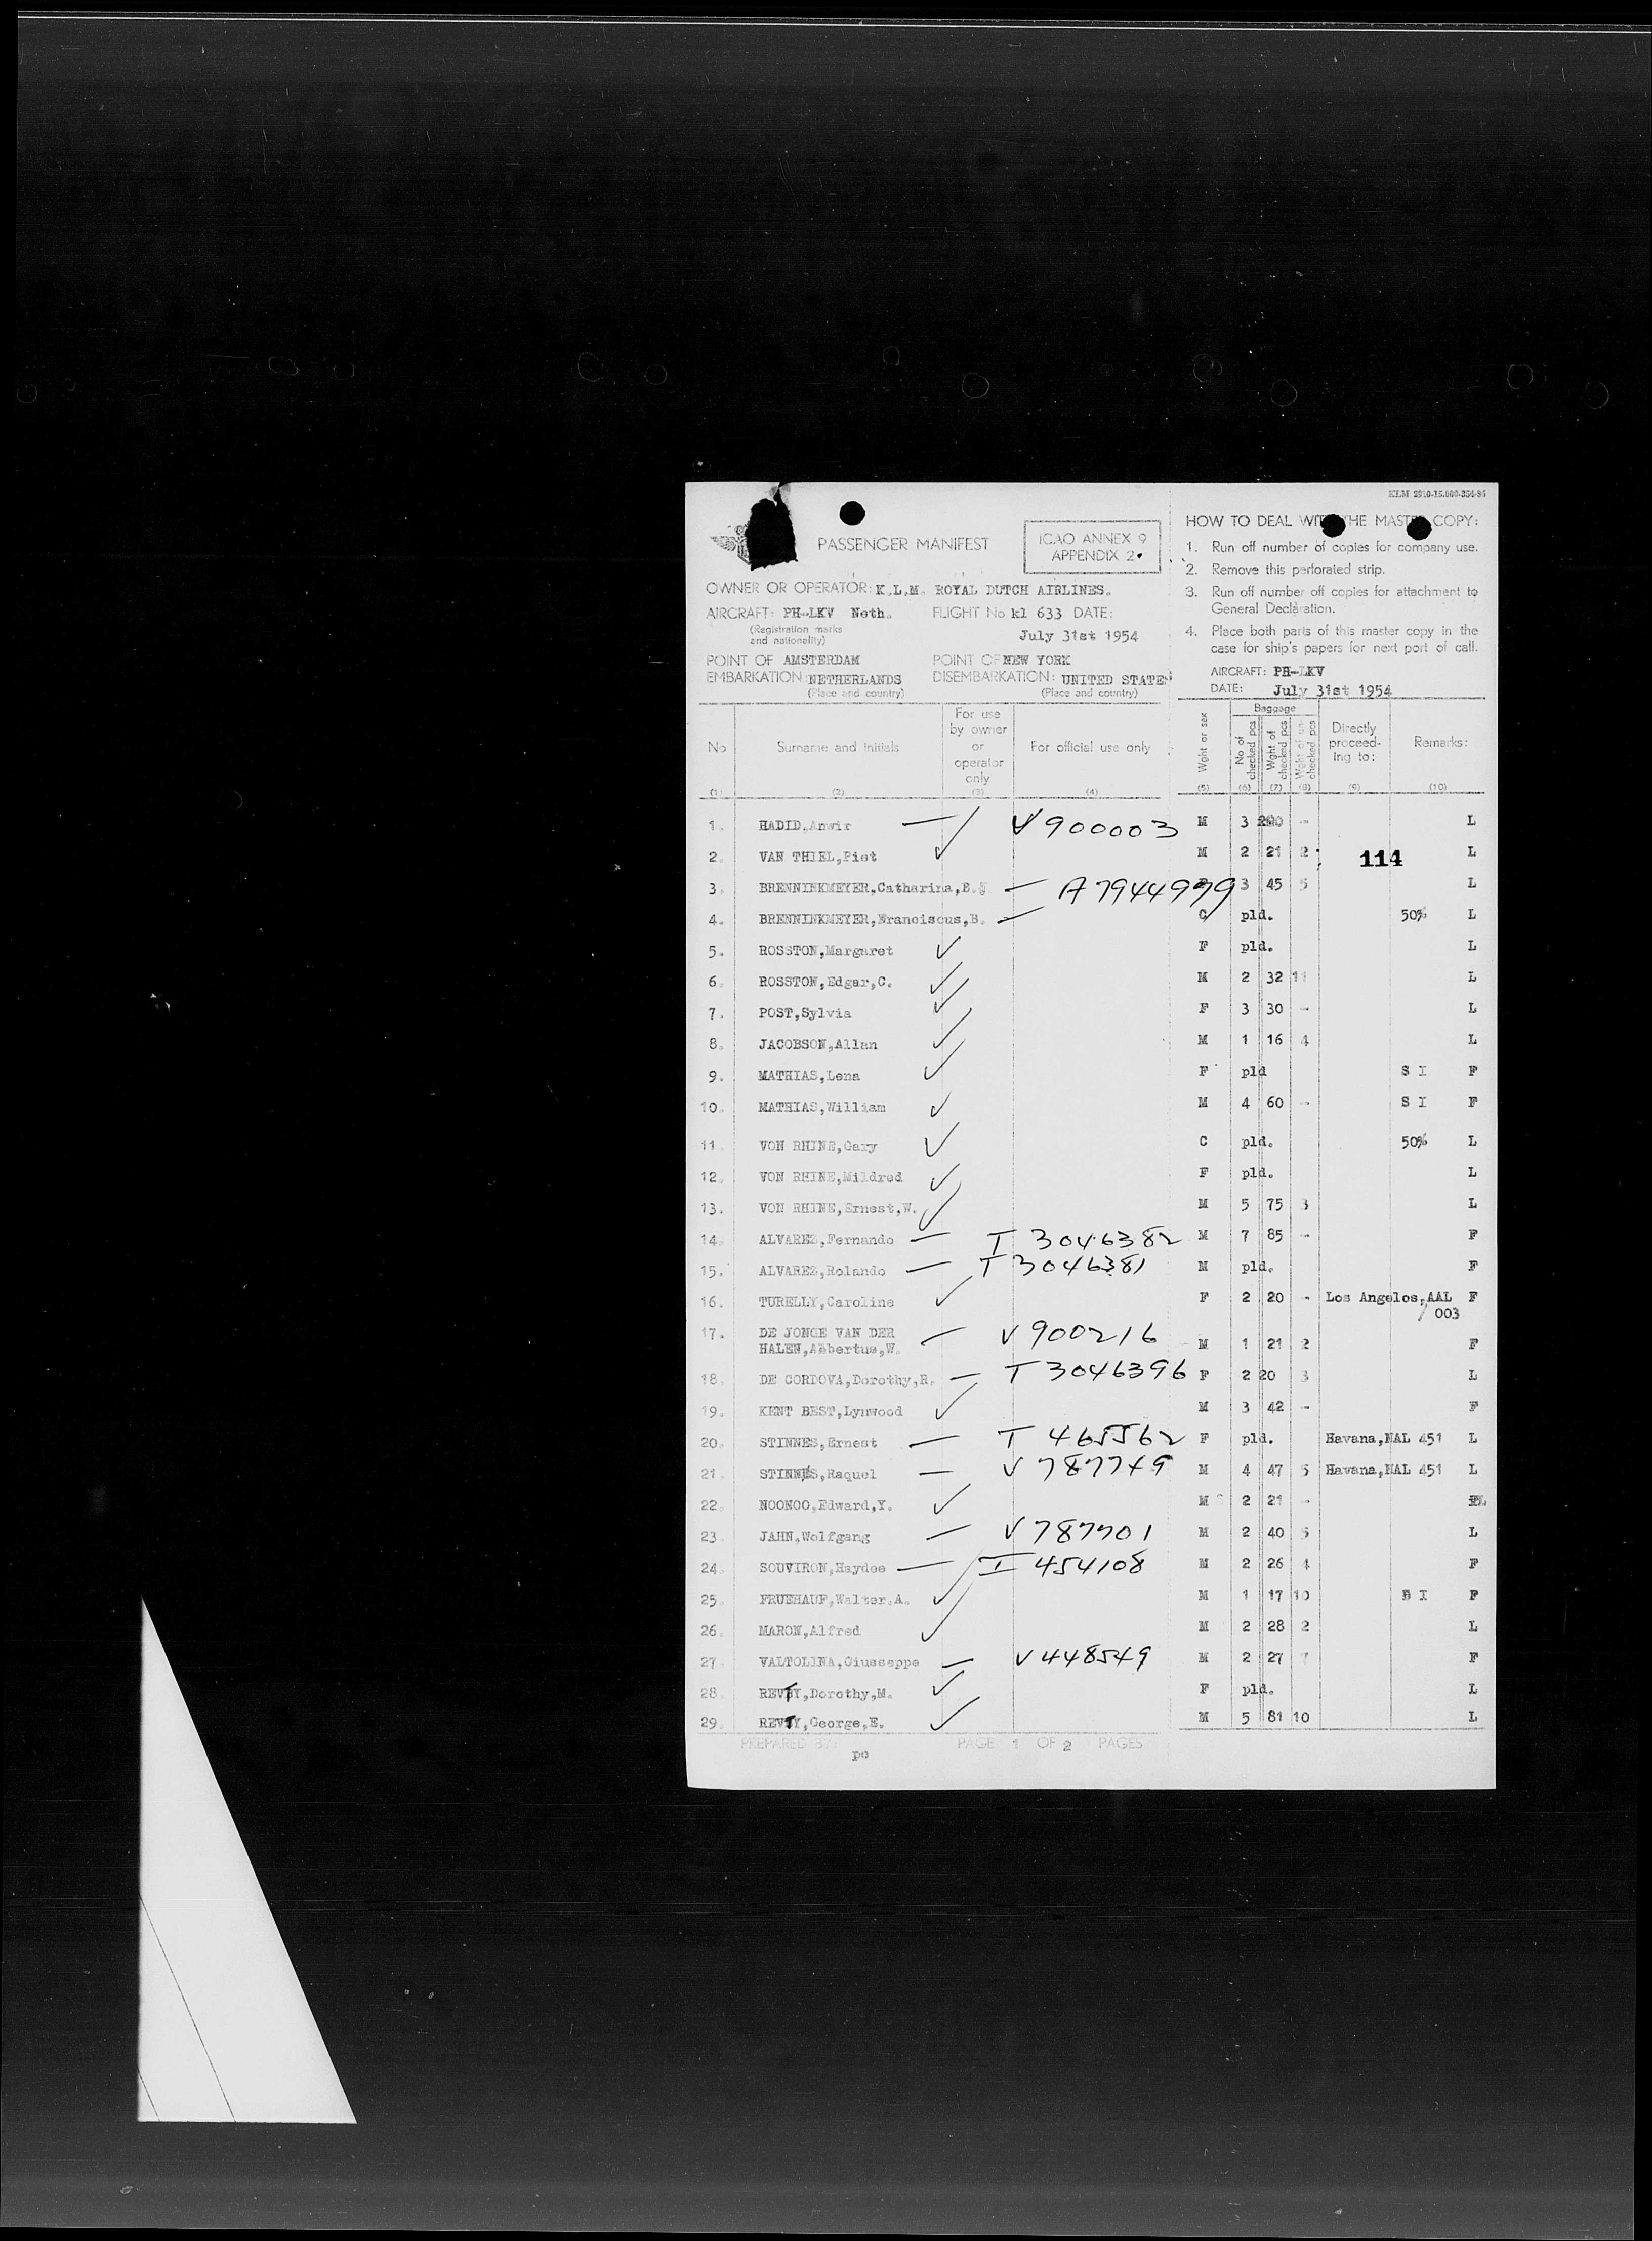 KLM 2910-15.000-354-86
PASSENGER MANIFEST
ICAO ANNEX 9
APPENDIX 2
OWNER OR OPERATOR: K.L.M. ROYAL DUTCH AIRLINES.
AIRCRAFT: PH-LKV Neth. FLIGHT No kl 633 DATE:
(Registration marks
and nationality)
July 31st 1954
POINT OF AMSTERDAM POINT OF NEW YORK
EMBARKATION: NETHERLANDS DISEMBARKATION: UNITED STATES
(Place and country) (Place and country)
HOW TO DEAL WITH THE MASTER COPY:
1. Run off number of copies for company use.
2. Remove this perforated strip.
3. Run off number off copies for attachment to
General Declaration.
4. Place both parts of this master copy in the
case for ship's papers for next port of call.
AIRCRAFT: PH-LKV
DATE: July 31st 1954
No Surname and initials For use by owner or operator only For official use only Wght or sex Baggage No of checked pcs Wght of checked pcs Wght of un-checked pcs Directly proceed-ing to: Remarks:
(1) (2) (3) (4) (5) (6) (7) (8) (9) (10)
1. HADID,Anwir — V900003 M 3 - L
2. VAN THIEL,Piet ✓ M 2 21 2 114 L
3. BRENNINKMEYER,Catharina,E. — A7944979 3 45 5 L
4. BRENNINKMEYER,Franciscus,B. — C pld. 50% L
5. ROSSTON,Margaret ✓ F pld. L
6. ROSSTON,Edgar,C. ✓ M 2 32 11 L
7. POST,Sylvia ✓ F 3 30 - L
8. JACOBSON,Allan ✓ M 1 16 4 L
9. MATHIAS,Lena ✓ F pld S I F
10. MATHIAS,William ✓ M 4 60 - S I F
11. VON RHINE,Gary ✓ C pld. 50% L
12. VON RHINE,Mildred ✓ F pld. L
13. VON RHINE,Ernest,W. ✓ M 5 75 3 L
14. ALVAREZ,Fernando — T 3046382 M 7 85 - F
15. ALVAREZ,Rolando — T 3046381 M pld. F
16. TURELLY,Caroline ✓ F 2 20 - Los Angelos,AAL F
/ 003
17. DE JONGE VAN DER
HALEN,Abbertus,W. — V 900216 M 1 21 2 F
18. DE CORDOVA,Dorothy,R. — T 3046396 F 2 20 3 L
19. KENT BEST,Lynwood ✓ M 3 42 - F
20. STINNES,Ernest — T 465562 F pld. Havana,NAL 451 L
21. STINNES,Raquel — V 787749 M 4 47 5 Havana,NAL 451 L
22. NOONOO,Edward,Y. ✓ M 2 21 - L
23. JAHN,Wolfgang — V 787701 M 2 40 5 L
24. SOUVIRON,Haydee — I 454108 M 2 26 4 F
25. FRUEHAUF,Walter.A. ✓ M 1 17 10 I F
26. MARON,Alfred ✓ M 2 28 2 L
27. VALTOLINA,Giuseppe — V448549 M 2 27 7 F
28. REVTY,Dorothy,M. ✓ F pld. L
29. REVTY,George,E. ✓ M 5 81 10 L
PREPARED BY: PAGE 1 OF 2 PAGES
po